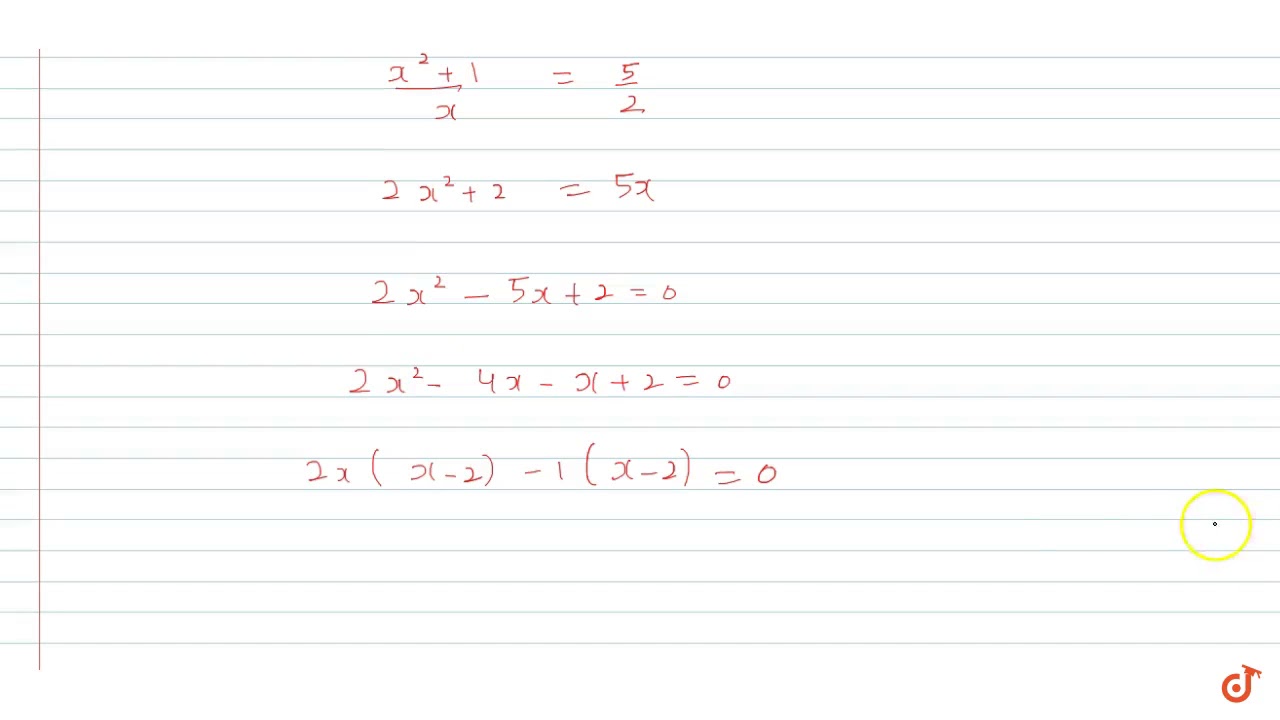 x² + 1 / x = 5 / 2
2x² + 2 = 5x
2x² - 5x + 2 = 0
2x² - 4x - x + 2 = 0
2x(x - 2) - 1(x - 2) = 0